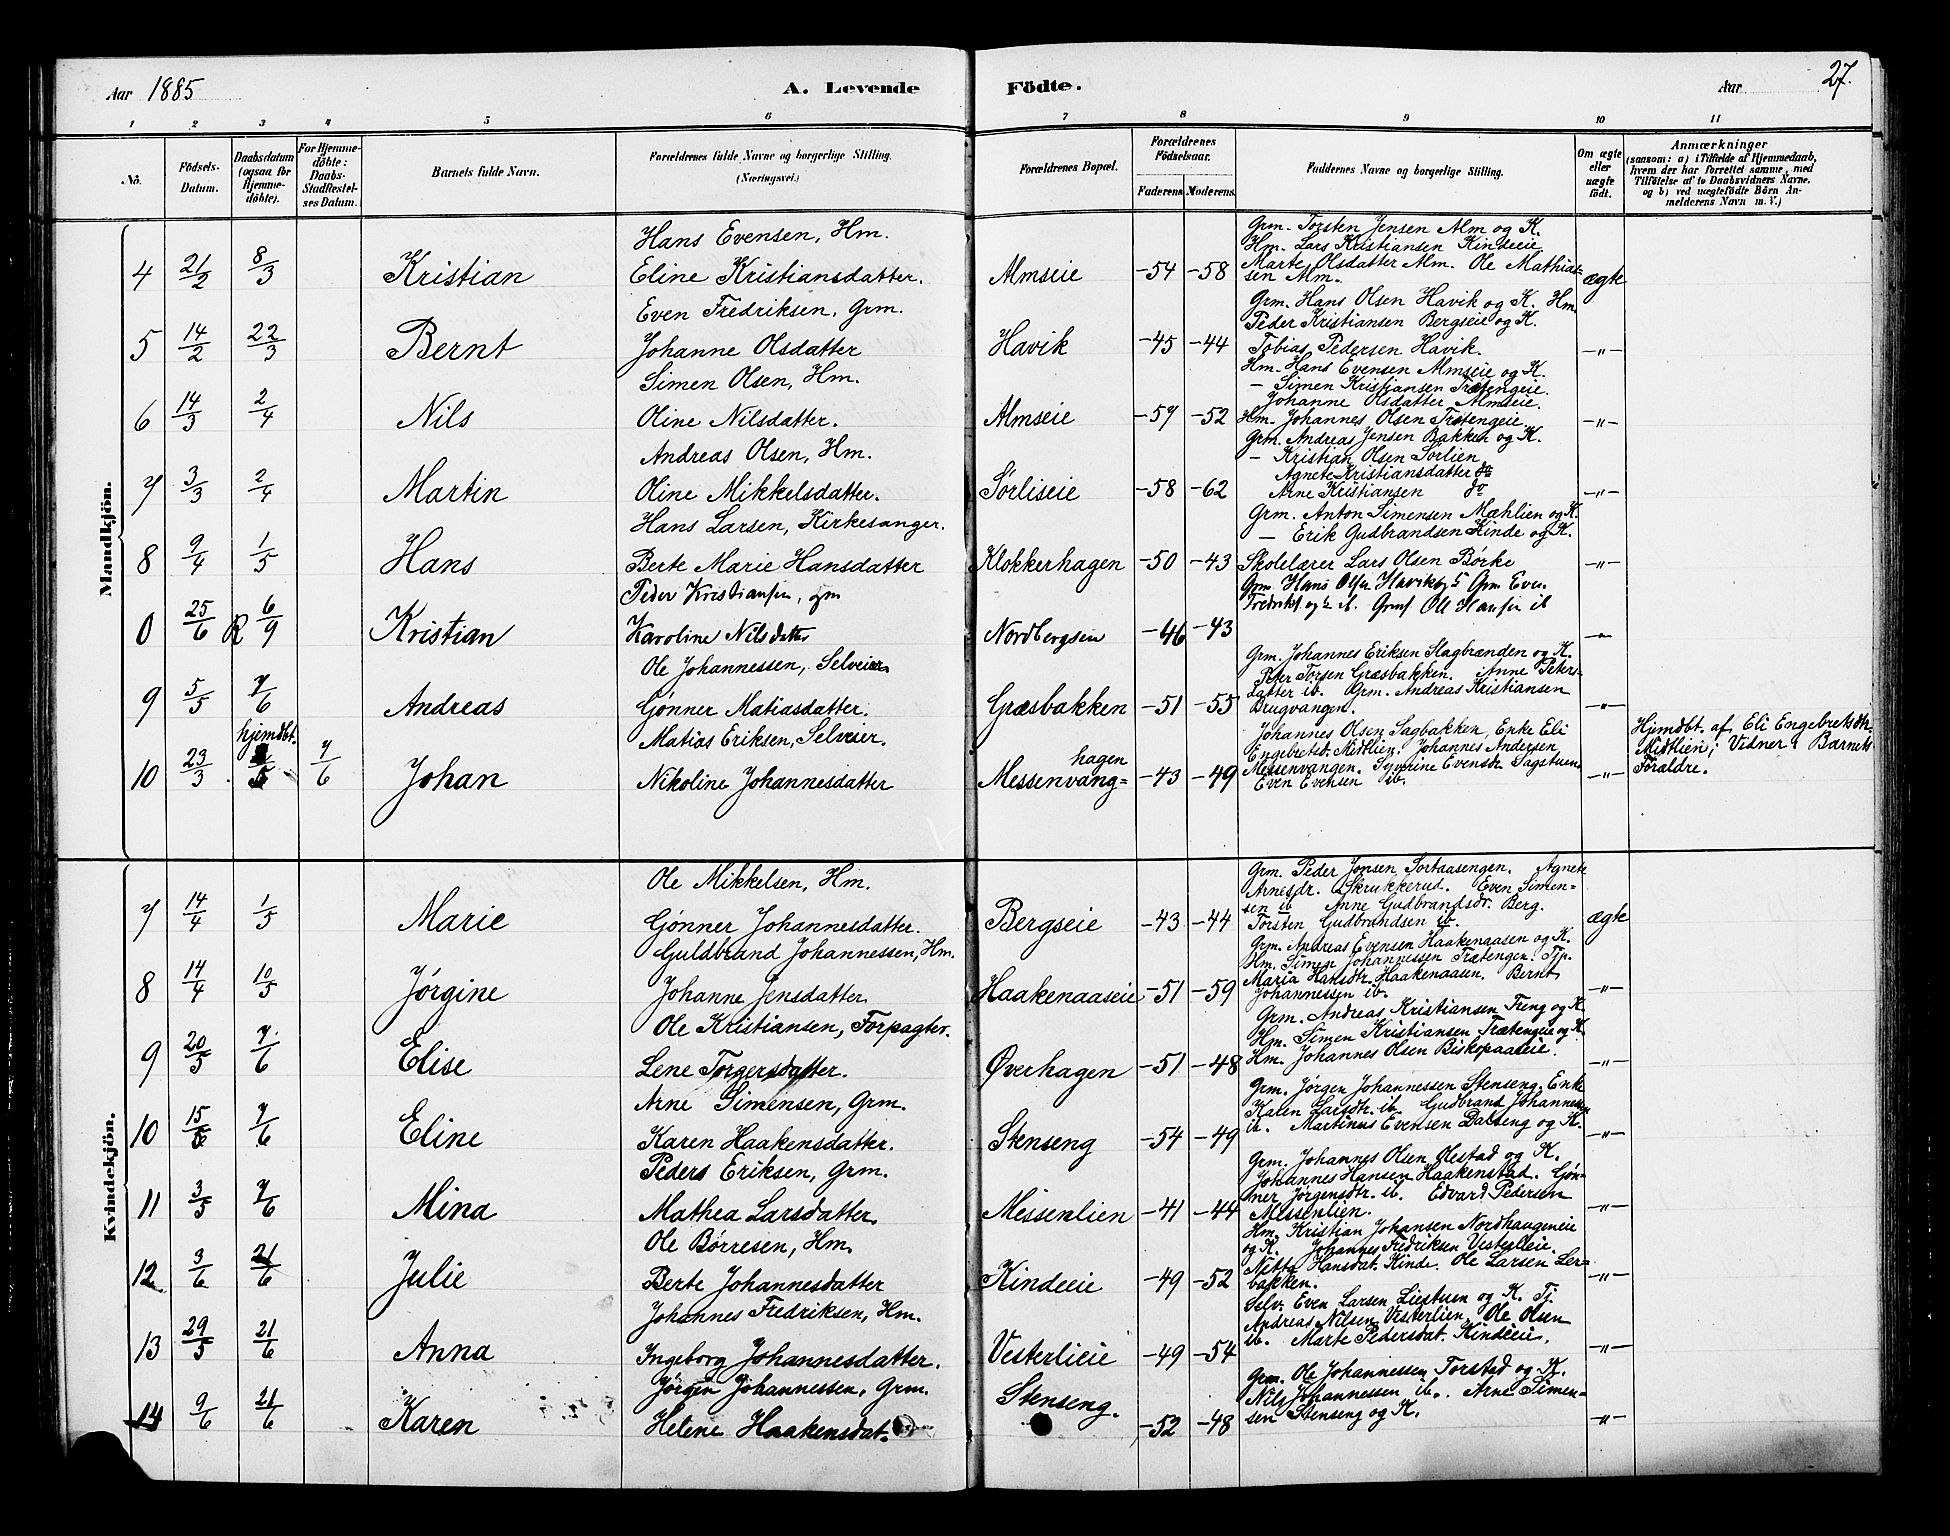 Aar 1885
A. Levende Födte.
Aar 27.
1 2 3 4 5 6 7 8 9 10 11
No.
Födsels-Datum.
Daabsdatum (ogsaa for Hjemme-döbte).
For Hjemme-döbte: Daabs-Stadfæstel-ses Datum.
Barnets fulde Navn.
Forældrenes fulde Navne og borgerlige Stilling. (Næringsvei.)
Forældrenes Bopæl.
Forældrenes Födselsaar.
Faderens. Moderens.
Faddernes Navne og borgerlige Stilling.
Om ægte eller uægte födt.
Anmærkninger
(saasom: a) i Tilfælde af Hjemmedaab, hvem der har forrettet samme, med Tilföielse af to Daabsvidners Navne. og b) ved uægtefödte Börn An-melderens Navn m. V.)
Mandkjön.
Hans Evensen, Hm.
4 21/2 8/3 Kristian Eline Kristiansdatter. Almseie -54 -58 ægte
Grm. Torsten Jensen Alm og K.
Hm. Lars Kristiansen Kindeeie
Marte Olsdatter Alm. Ole Mathias-
sen Alm.
Even Fredriksen, Grm.
5 14/2 22/3 Bernt Johanne Olsdatter Havik -45 -44 -"-
Grm. Hans Olsen Havik og K. Hm.
Peder Kristiansen Bergseie og K.
Tobias Pedersen Havik.
Simen Olsen, Hm.
6 14/3 2/4 Nils Oline Nilsdatter. Almseie -57 -52 -"-
Hm. Hans Evensen Almseie og K.
- Simen Kristiansen Trætengeie.
Johanne Olsdatter Almseie.
Hm. Johannes Olsen Trætengeie
Andreas Olsen, Hm.
7 3/3 2/4 Martin Oline Mikkelsdatter. Sørliseie -58 -62 -"-
Grm. Andreas Jensen Bakken og K.
- Kristian Olsen Sørlien
Agnete Kristiansdatter do
Arne Kristiansen do
Hans Larsen, Kirkesanger.
8 9/4 1/5 Hans Berte Marie Hansdatter Klokkerhagen -50 -43 -"-
Grm. Anton Simensen Mæhlien og K.
- Erik Gudbrandsen Kinde og K.
Skolelærer Lars Olsen Børke
Peder Kristiansen, gm
0 25/6 R 6/9 Kristian Karoline Nilsdatter Nordbergseie -46 -43 -"-
Grm Hans Olsen Havik og Grm Even
Fredriks. ib. Ole Hansen ib
Ole Johannessen, Selveier
9 5/5 7/6 Andreas Gønner Matiasdatter. Græsbakken -51 -55 -"-
Grm. Johannes Eriksen Slagbrænden og K.
Peter Torsen Græsbakken. Anne Peters-
datter ib. Grm. Andreas Kristiansen
Brugvangen.
Matias Eriksen, Selveier.
10 23/3 hjemdbt. 7/6 Johan Nikoline Johannesdatter Messenvang= hagen -43 -49 -"-
Johannes Olsen Sagbakken, Enke Eli
Engebretsd. Midtlien. Johannes Andersen
Messenvangen. Syverine Evensdr. Sagstuen
Even Evensen ib.
Hjemdbt. af Eli Engebretsdtr.
Midtlien; Vidner: Barnets
Forældre.
Kvindekjön.
Ole Mikkelsen, Hm.
7 14/4 1/5 Marie Gønner Johannesdatter. Bergseie -43 -44 ægte
Grm. Peder Jonsen Sortaasengen. Agnete
Arnesdr. Skrukkerud. Even Simen=
sen ib Anne Gudbrandsdr. Berg.
Torsten Gudbrandsen ib.
Guldbrand Johannessen, Hm.
8 14/4 10/5 Jørgine Johanne Jensdatter Haakenaaseie -51 -59 -"-
Grm. Andreas Evensen Haakenaasen og K.
Hm. Simen Johannessen Trætengen. Tjp.
Maria Hansdtr. Haakenaasen. Bernt
Johannessen ib.
Ole Kristiansen, Forpagter.
9 20/5 7/6 Elise Lene Torgersdatter. Øverhagen -51 -48 -"-
Grm. Andreas Kristiansen Treng og K.
Hm. Simen Kristiansen Trætengeie og K.
Hm. Johannes Olsen Biskopaaseie.
Arne Simensen, Grm.
10 15/5 7/6 Eline Karen Haakensdatter. Stenseng -54 -49 -"-
Grm. Jørgen Johannessen Stenseng. Enke
Karen Larsdtr. ib. Gudbrand Johannessen
ib. Martinus Evensen Dalseng og K.
Peders Eriksen, Grm.
11 3/5 7/6 Mina Mathea Larsdatter. Messenlien -41 -44 -"-
Grm. Johannes Olsen Olestad og K.
Johannes Hansen Haakenstad. Gøn-
ner Jørgensdtr. ib. Edvard Pedersen
Messenlien.
Ole Børresen, Hm.
12 3/6 21/6 Julie Berte Johannesdatter Kindeeie -49 -52 -"-
Hm. Kristian Johansen Nordhaugeneie
og K. Johannes Fredriksen Vesterlieie.
Nitta Hansdat. Kinde. Ole Larsen Ler-
bakken.
Johannes Fredriksen, Hm.
13 29/5 21/6 Anna Ingeborg Johannesdatter. Vesterlieie -49 -54 -"-
Selv. Even Larsen Liestuen og K. Tj.
Andreas Nilsen Vesterlien. Ole Olsen
ib. Marte Pedersdat. Kindeeie.
Jørgen Johannessen, Grm.
14 9/6 21/6 Karen Helene Haakensdat. Stenseng. -52 -48 -"-
Grm. Ole Johannessen Torstad og K.
Nils Johannessen ib. Arne Simen-
sen Stenseng og K.